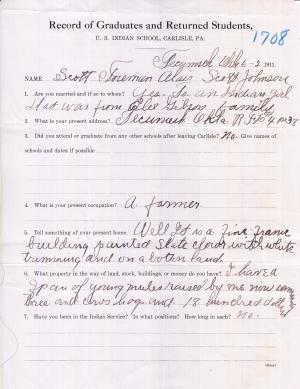 Record of Graduates and Returned Students,
1708
U. S. INDIAN SCHOOL, CARLISLE, PA.
Tecumseh Okla 6-2 1911.
NAME Scott Foreman Alias Scott Johnson
1. Are you married and if so to whom? Yes. To an Indian girl
that was from family
2. What is your present address? Tecumseh Okla. R F D 4
3. Did you attend or graduate from any other schools after leaving Carlisle? No. Give names of
schools and dates if possible
4. What is your present occupation? A farmer
5. Tell something of your present home. Well It is a Fine Frame
building painted Slate with white
trimming and on a land.
6. What property in the way of land, stock, buildings, or money do you have? I have a
Span of young mules raised by me now
three and cows hogs and 18 hundred dollars
7. Have you been in the Indian Service? In what positions? How long in each? no.
(Over)